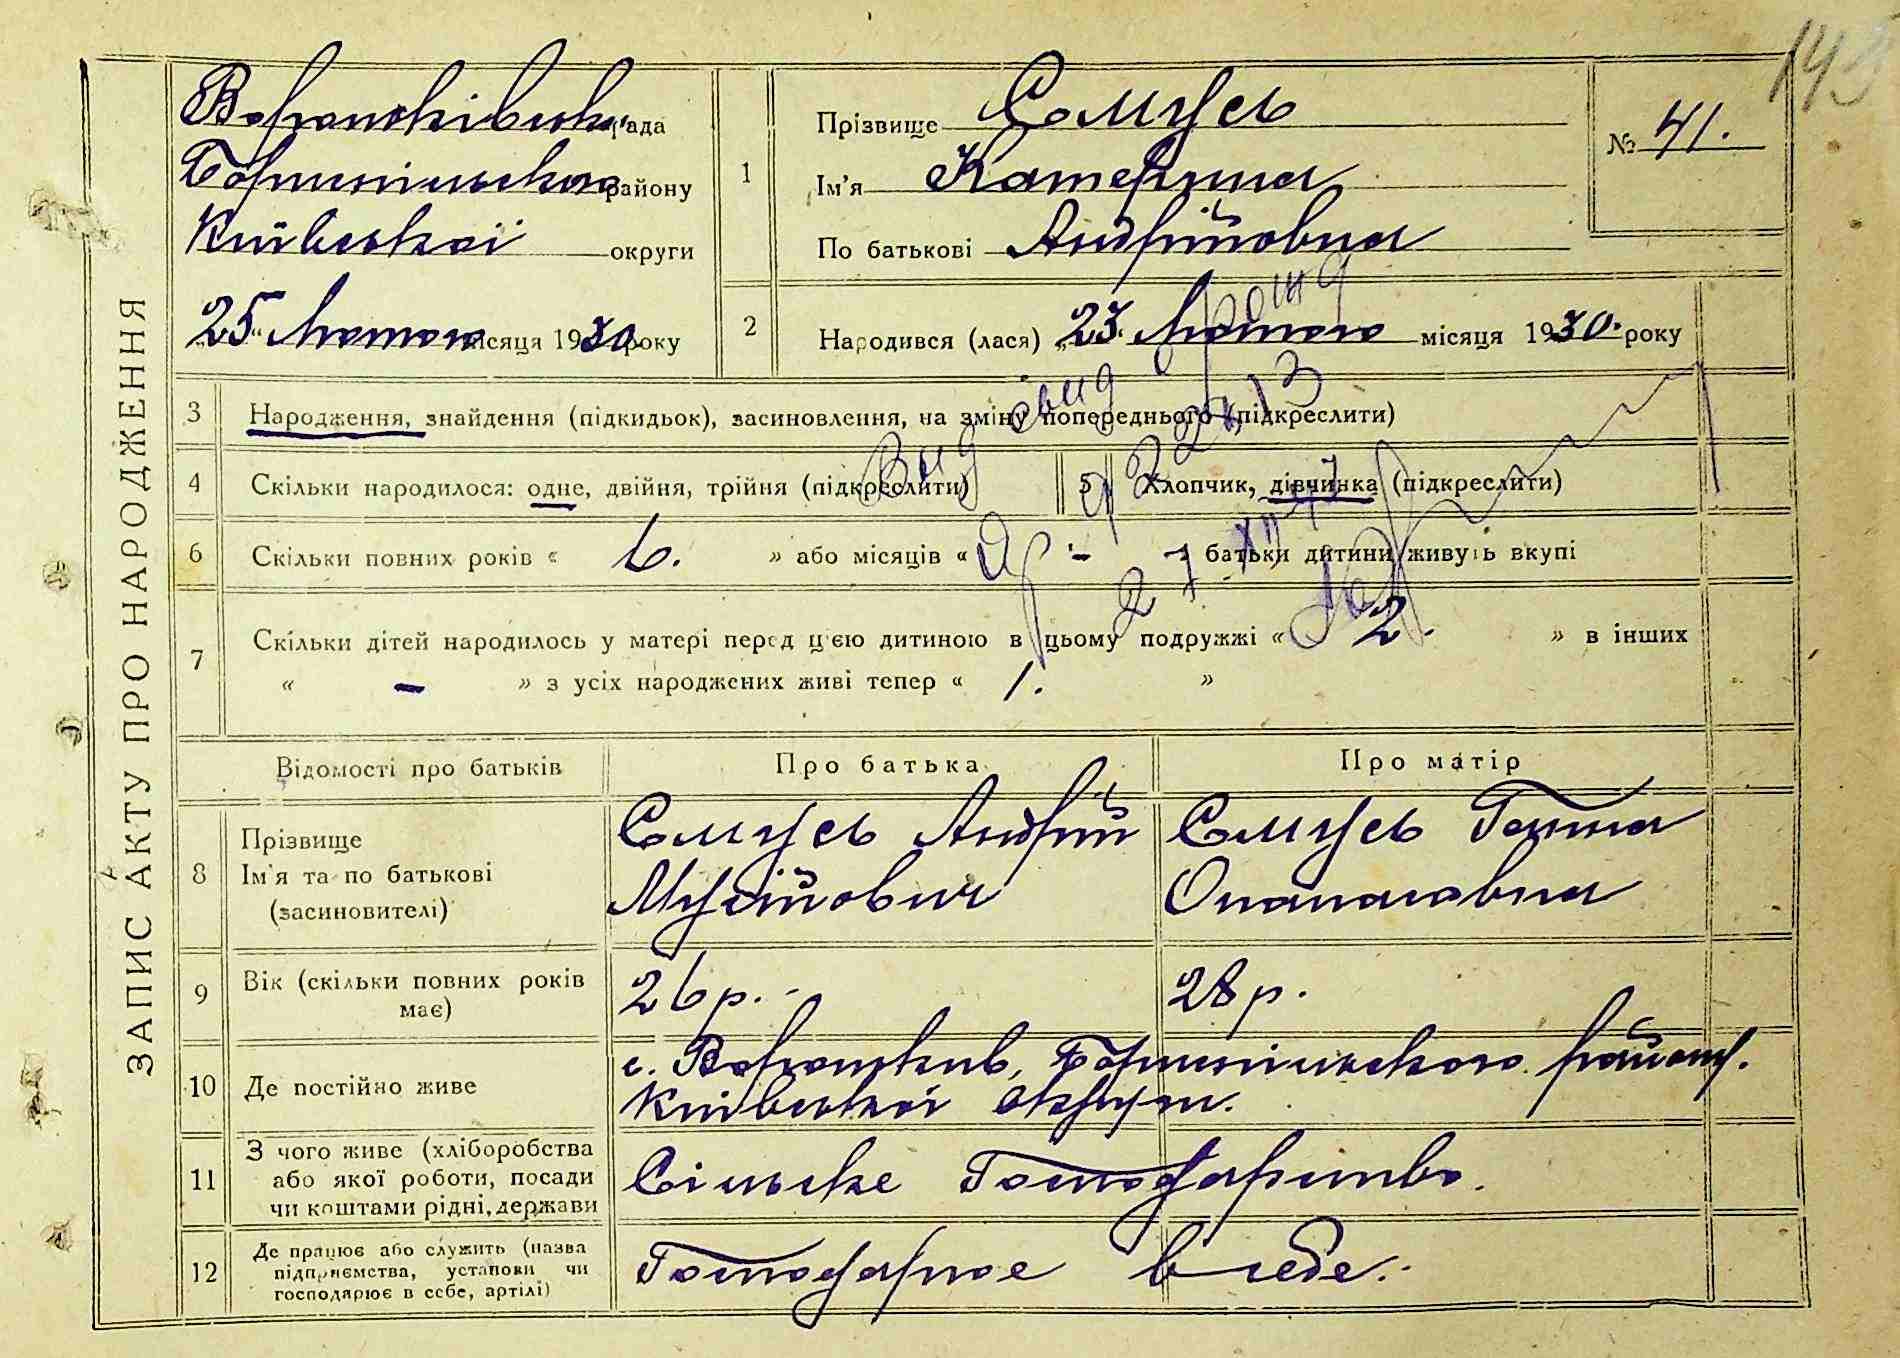 143
ЗАПИС АКТУ ПРО НАРОДЖЕННЯ
Вороньківська рада
Бориспільского району
Київської округи
„25“ Лютого місяця 1930 року
1
Прізвище Сомусь
Ім'я Катерина
По батькові Андрійовна
№ 41.
2 Народився (лася) „23“ Лютого місяця 1930. року
3 Народження, знайдення (підкидьок), засиновлення, на зміну попереднього (підкреслити)
4 Скільки народилося: одне, двійня, трійня (підкреслити)
5 Хлопчик, дівчинка (підкреслити)
6 Скільки повних років « 6. » або місяців « - » батьки дитини живуть вкупі
7 Скільки дітей народилось у матері перед цією дитиною в цьому подружжі « 2. » в інших
« – » з усіх народжених живі тепер « 1. »
Відомості про батьків
Про батька
Про матір
8 Прізвище
Ім'я та по батькові
(засиновителі)
Сомусь Андрій
Мусійович
Сомусь Ганна
Опанасовна
9 Вік (скільки повних років
має)
26 р.
28 р.
10 Де постійно живе
с. Вороньків, Бориспільського району.
Київської округи.
11 З чого живе (хліборобства
або якої роботи, посади
чи коштами рідні, держави
Сільське Господарство.
12 Де працює або служить (назва
підприємства, установи чи
господарює в себе, артілі)
Господарює в себе.